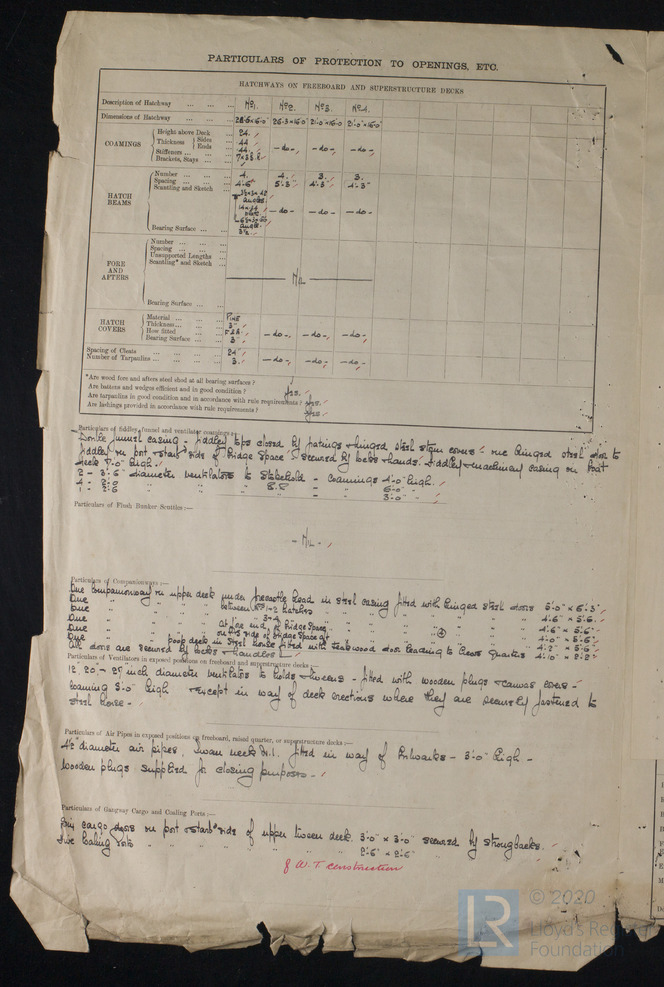 PARTICULARS OF PROTECTION TO OPENINGS, ETC.
HATCHWAYS ON FREEBOARD AND SUPERSTRUCTURE DECKS
Description of Hatchway No1. No2. No3. No4.
Dimensions of Hatchway
COAMINGS
Height above Deck 24.
Thickness Sides .44
Ends .44 -do-, -do-, -do-,
Stiffeners
Brackets, Stays
HATCH BEAMS
Number 4. 4. 3. 3.
Spacing 4'-6" 5'-3" 4'-3" 4'-3"
Scantling and Sketch angles plate angle -do- -do- -do-
Bearing Surface
FORE AND AFTERS
Number
Spacing
Unsupported Lengths
Scantling* and Sketch
Nil
Bearing Surface
HATCH COVERS
Material Pine
Thickness 3"
How fitted F & A. -do-, -do-, -do-,
Bearing Surface 3"
Spacing of Cleats 24"
Number of Tarpaulins 3. -do-, -do-, -do-,
*Are wood fore and afters steel shod at all bearing surfaces?
Are battens and wedges efficient and in good condition? Yes.
Are tarpaulins in good condition and in accordance with rule requirements? Yes.
Are lashings provided in accordance with rule requirements? Yes.
Particulars of fiddley, funnel and ventilator coamings:—
Double funnel casing - fiddley tops closed by gratings & hinged steel storm covers - one hinged steel door to
fiddley on port & starbd side of Bridge Space secured by bolts & hands. Fiddley & machinery casing on Boat
deck high.
2 - 3'-6" diameter ventilators to Stokehold - coamings 4'-0" high.
4 - 2'-0 " " " " " 6'-0" "
1 - 2'-6 " " " " " 3'-0" "
Particulars of Flush Bunker Scuttles:—
- Nil -
Particulars of Companionways:—
One companionway on upper deck under forecastle head in steel casing fitted with hinged steel doors 5'-0" × 5'-3"
One " " " between No 1-2 hatches " " " 4'-6" × 5'-6"
One " " " 3-4 " " " 4'-6" × 5'-6"
One " " " at fore end of Bridge Space " " " 4'-0" × 5'-6"
One " " " on stb side of Bridge Space aft " " " 4'-2" × 5'-6"
One " " poop deck in Steel house fitted with teakwood door leading to Crew Quarters 4'-10" × 2'-2"
All doors are secured by locks & handles
Particulars of Ventilators in exposed positions on freeboard and superstructure decks:—
12, 20" - 27 inch diameter ventilators to holds & tweens - fitted with wooden plugs & canvas covers -
coaming 3'-0" high except in way of deck erections where they are securely fastened to
steel house -
Particulars of Air Pipes in exposed positions on freeboard, raised quarter, or superstructure decks:—
4½" diameter air pipes, Swan neck W.I. fitted in way of bulwarks - 3'-0" high -
Wooden plugs supplied for closing purposes -
Particulars of Gangway Cargo and Coaling Ports:—
cargo doors on port & starbd side of upper tween deck. 3'-0" × 3'-0" secured by strongbacks.
Coaling Ports " " " " " " 2'-6" × 2'-6"
of W.T. construction
LR
© 2020
Lloyd's Register
Foundation